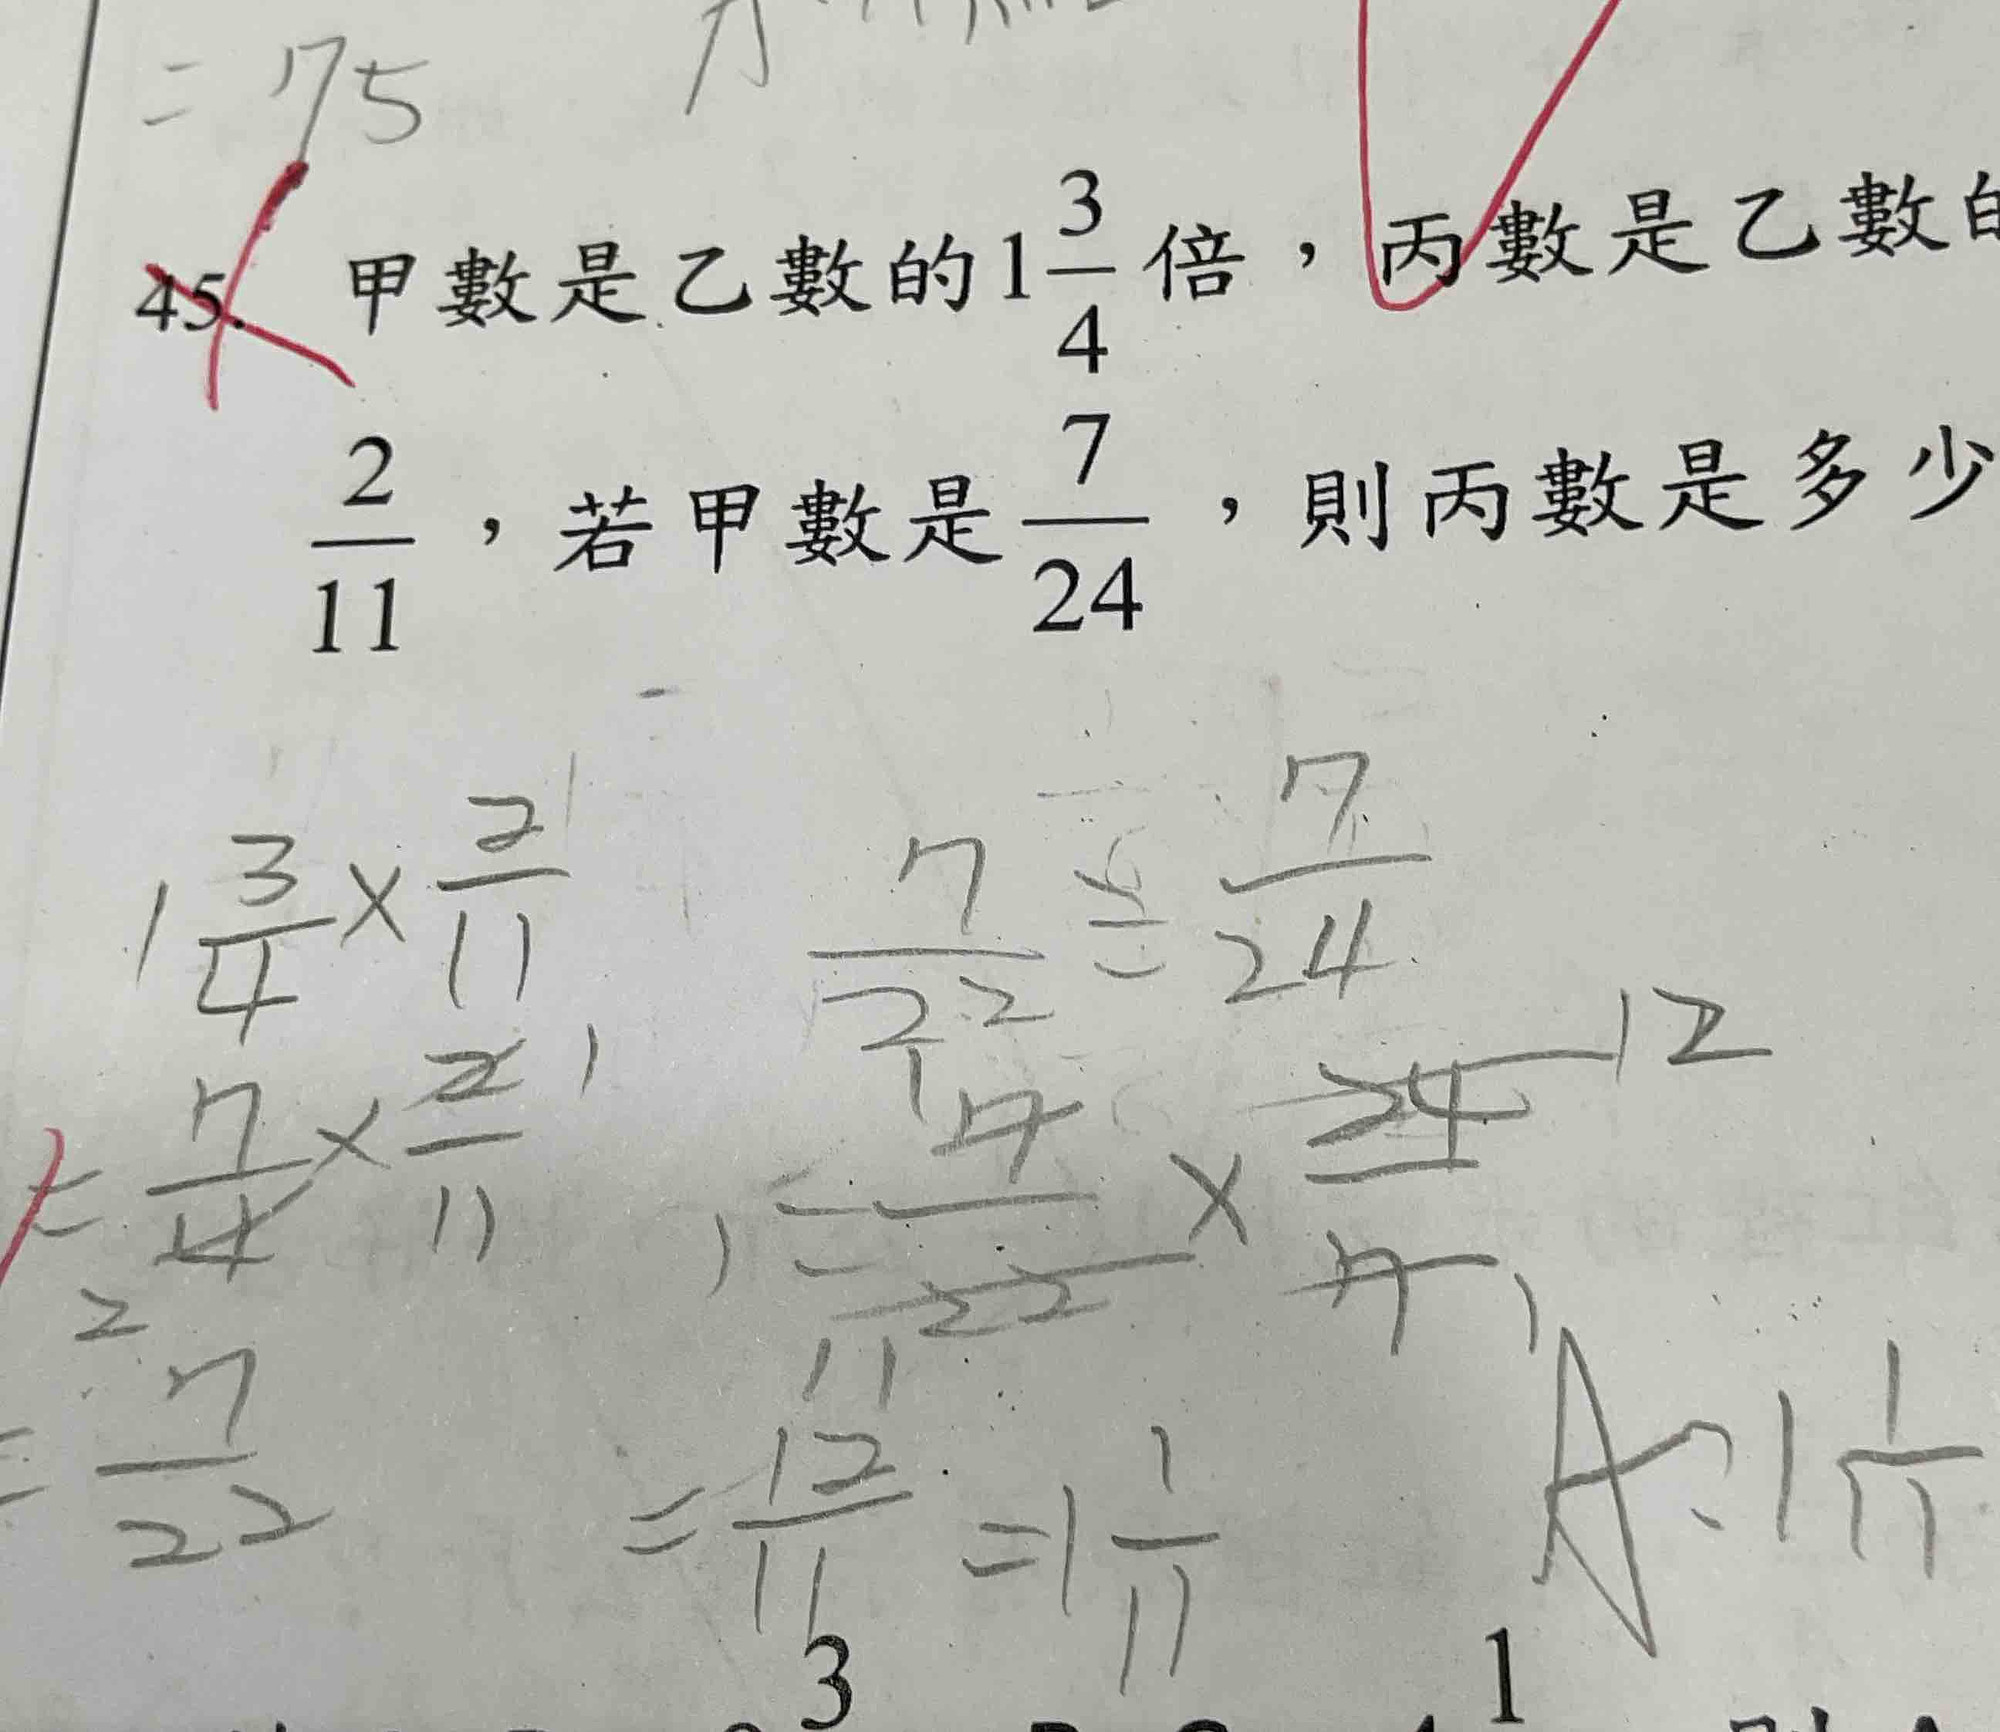 = 75
45. 甲數是乙數的1 3/4 倍，丙數是乙數的
2/11，若甲數是 7/24，則丙數是多少
1 3/4 × 2/11
= 7/4 × 2/11
2 1
= 7/22
7/22 ÷ 7/24
= 7/22 × 24/7
1 1 11 12 1
= 12/11 = 1 1/11
A: 1 1/11
3 1